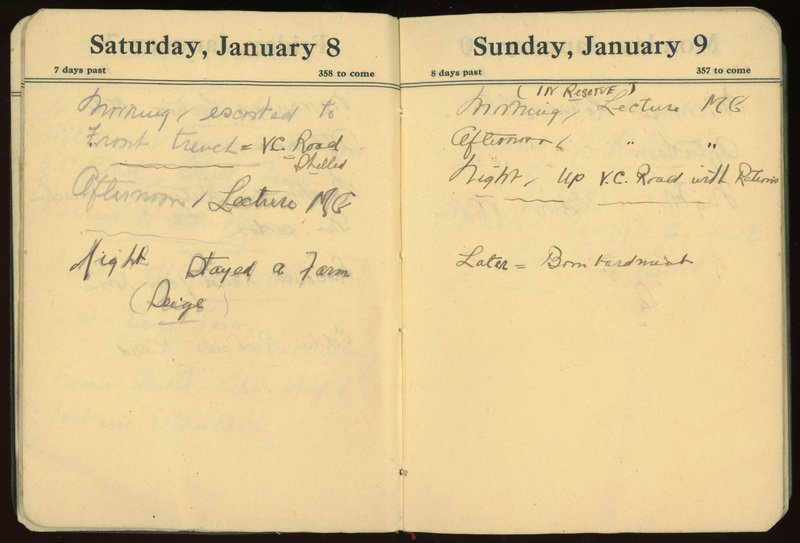 Saturday, January 8
7 days past 358 to come
Morning, escorted to
Front trench = V.C. Road
Shelled
Afternoon, Lecture MG
Night Stayed a Farm
Sunday, January 9
8 days past 357 to come
(IN RESERVE)
Morning, Lecture MG
Afternoon, " "
Night, Up V.C. Road with Rations
Later = Bombardment